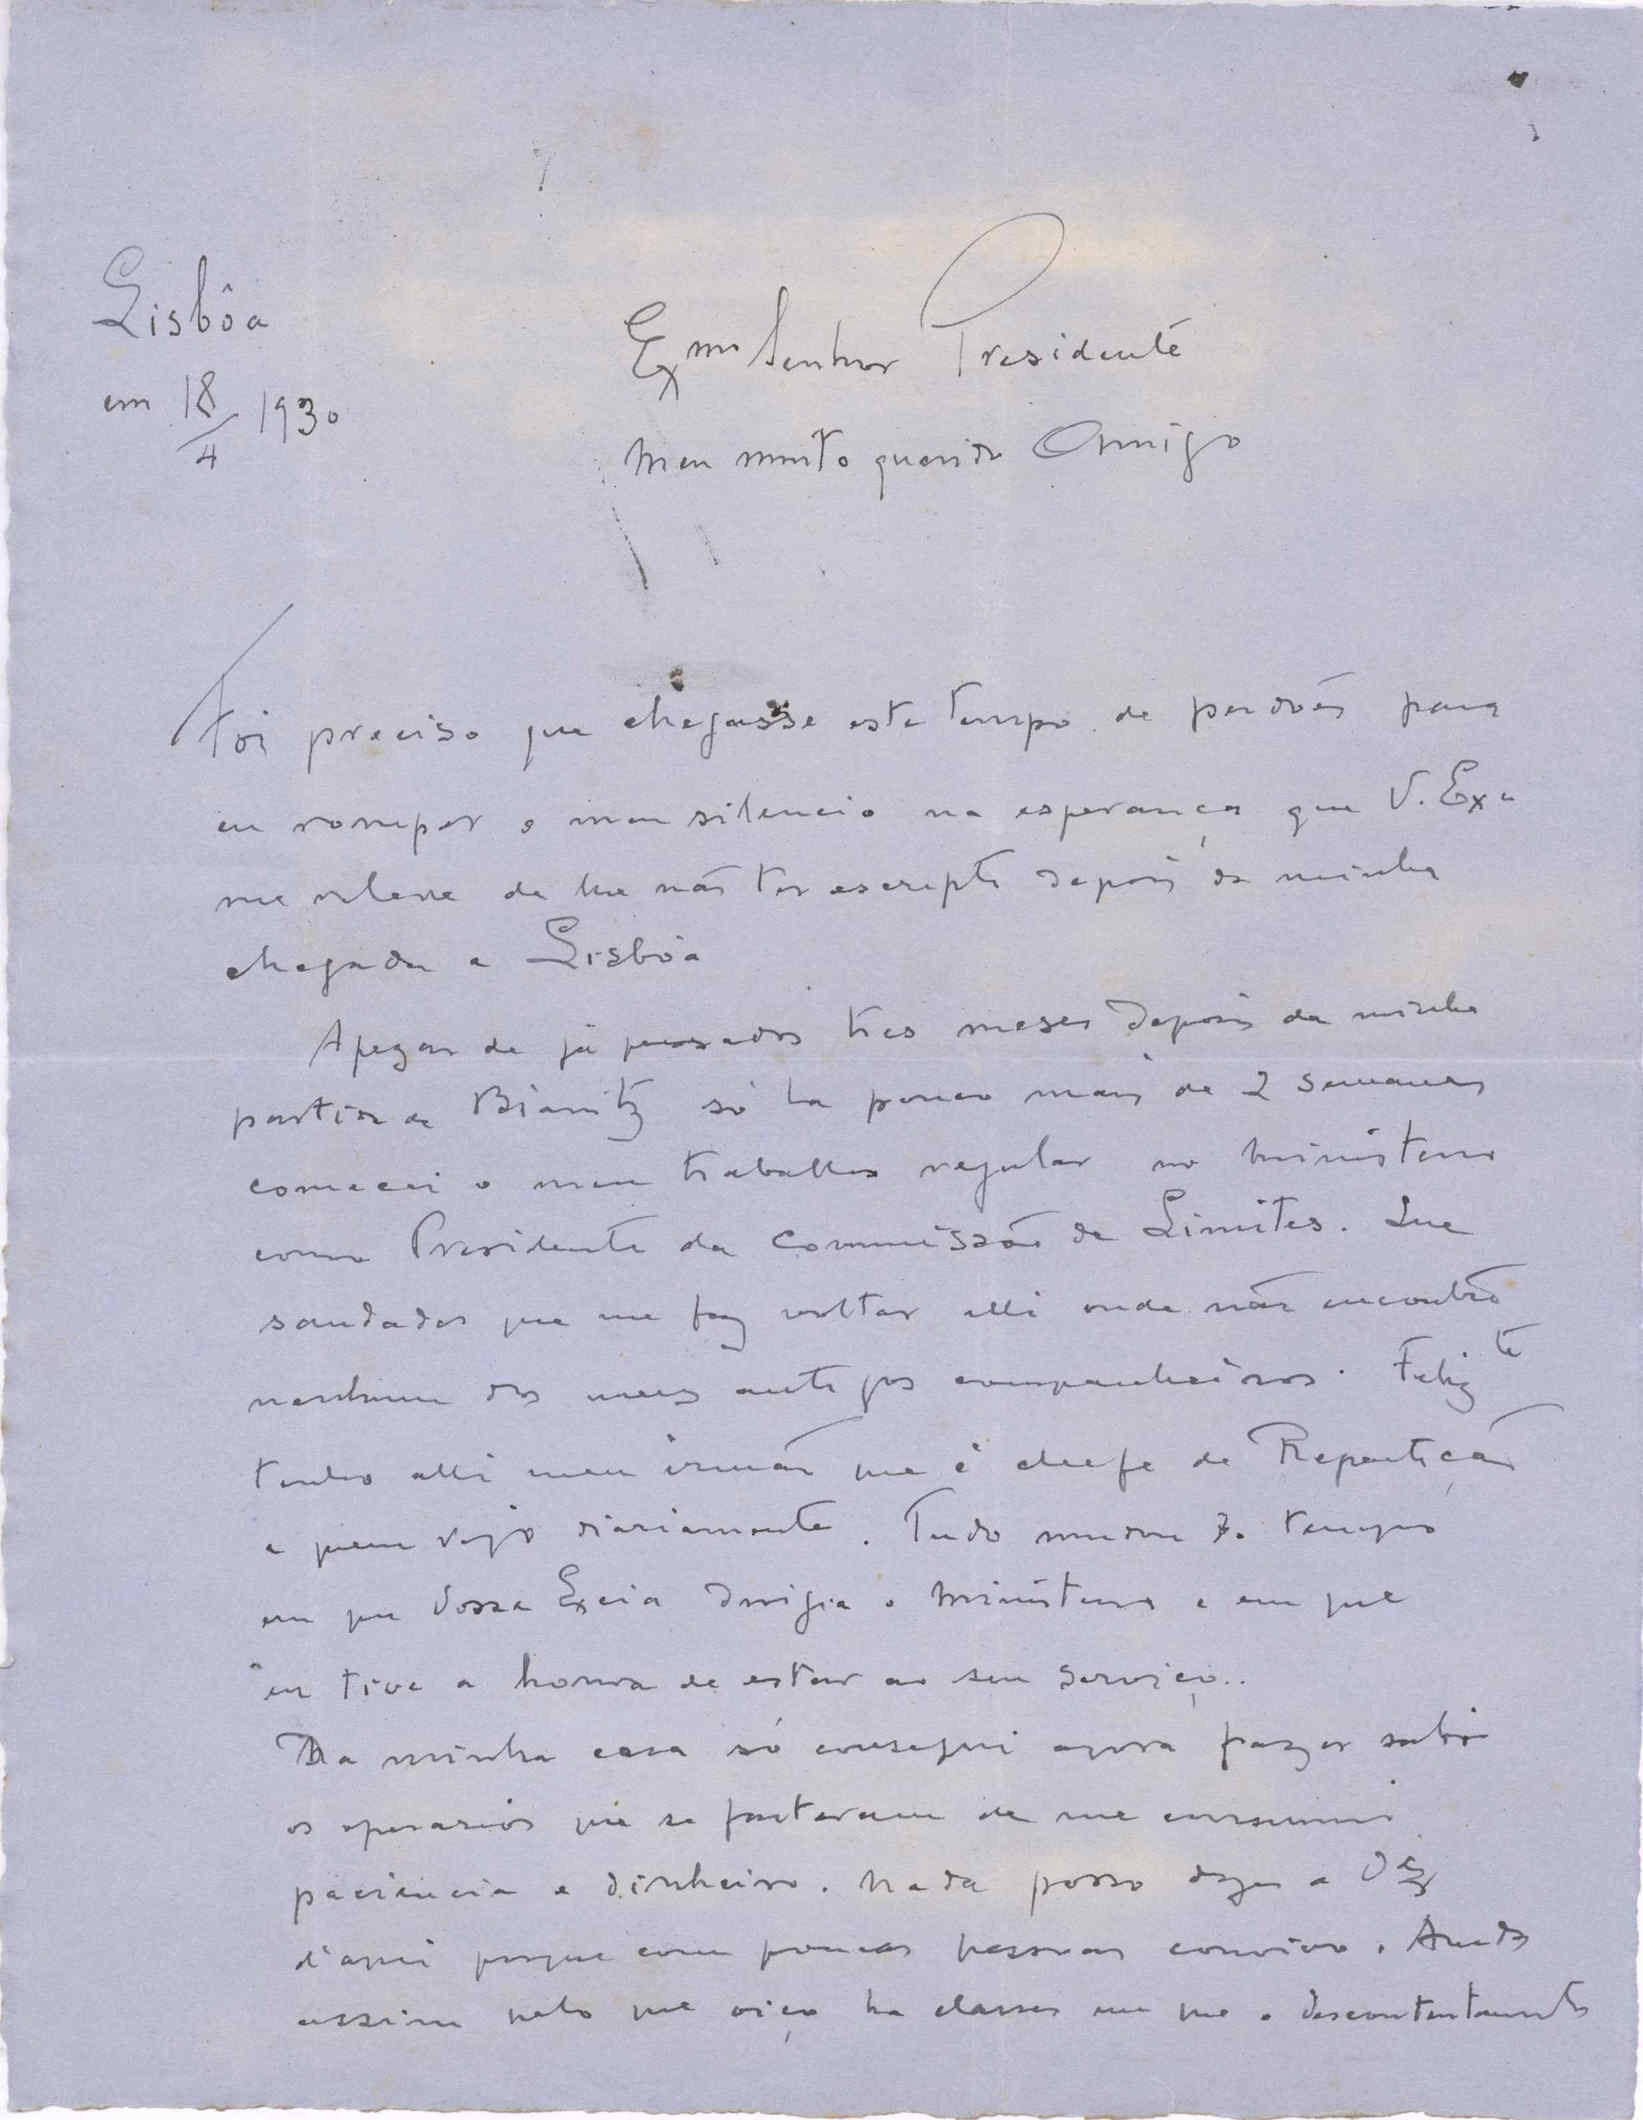 Lisbôa
em 18/4 1930
Exmo Senhor Presidente
Meu muito querido Amigo
Foi preciso que chegasse este tempo de perdões para
eu romper o meu silencio na esperança que V. Exa
me releve de lhe não ter escripto depois da minha
chegada a Lisbôa
Apezar de já passados tres meses depois da minha
partida de Biarritz só ha pouco mais de 2 semanas
comecei o meu trabalho regular no Ministerio
como Presidente da Commissão de Limites. Que
saudades que me faz voltar alli onde não encontro
nenhum dos meus antigos companheiros. Felizte
tenho alli meu irmão que é chefe de Repartição
a quem vejo diariamente. Tudo mudou do tempo
em que Vossa Excia dirigia o Ministerio e em que
eu tive a honra de estar ao seu serviço..
Da minha casa só consegui agora fazer sahir
os operarios que se fartaram de me consumir
paciencia e dinheiro. Nada posso dizer a V Ex
d'aqui porque com poucas pessoas convivo. Ainda
assim pelo que oiço ha classes em que o descontentamto